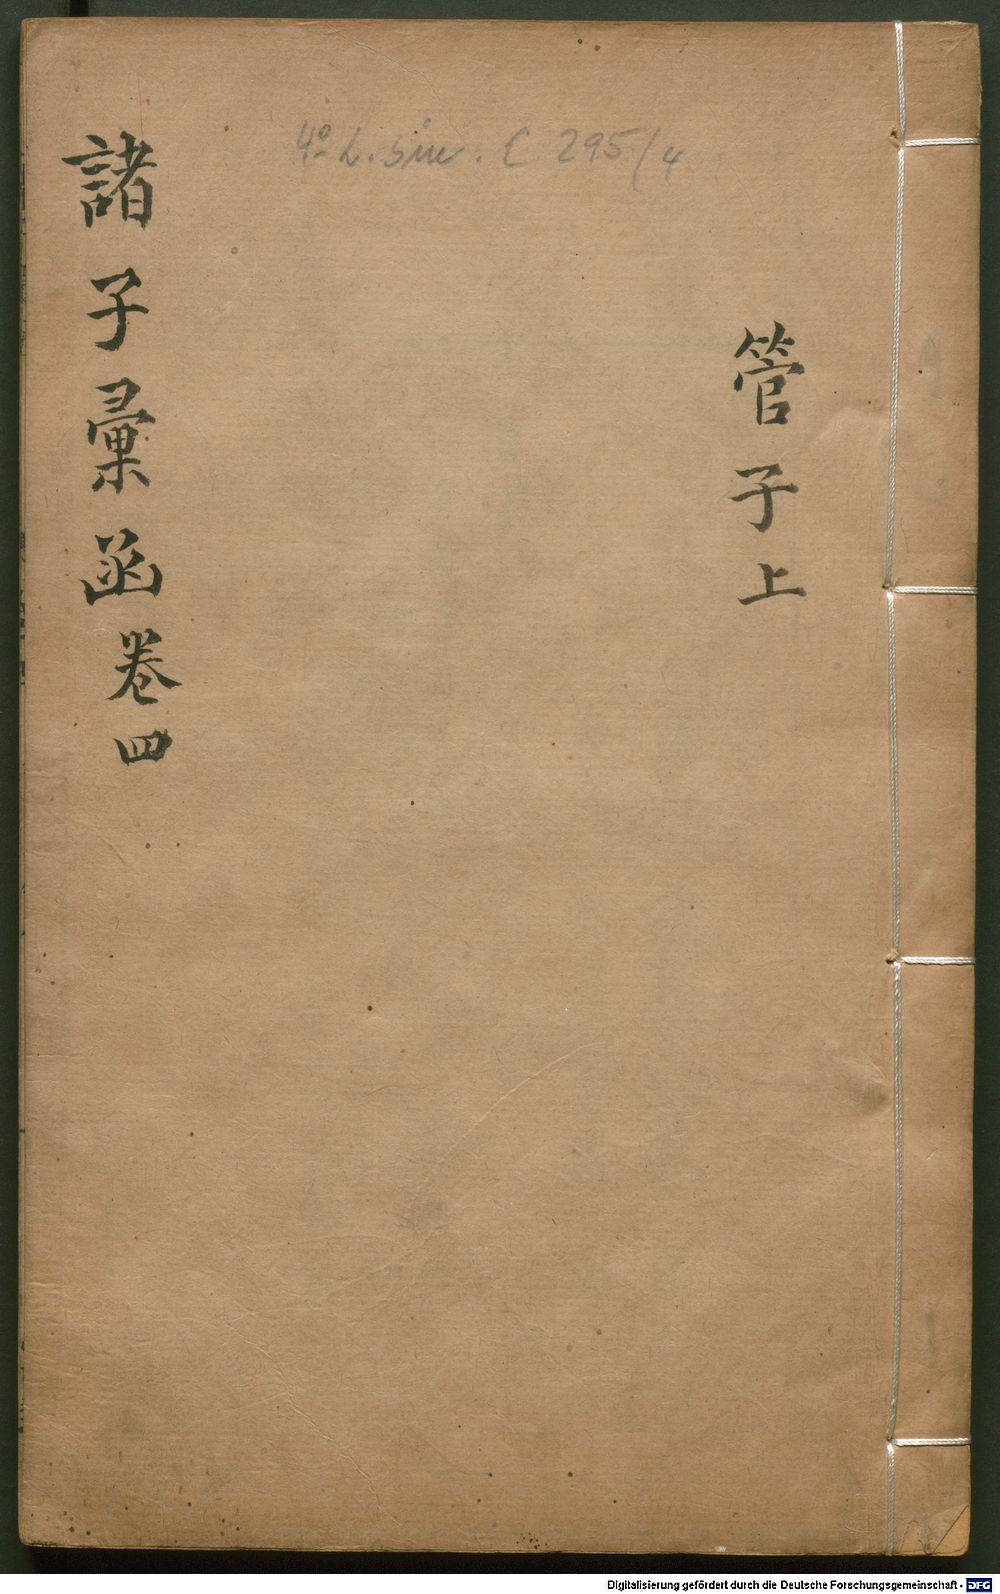 4° L. sin. C 295/4
管子上
諸子彙函卷四
Digitalisierung gefördert durch die Deutsche Forschungsgemeinschaft - DFG